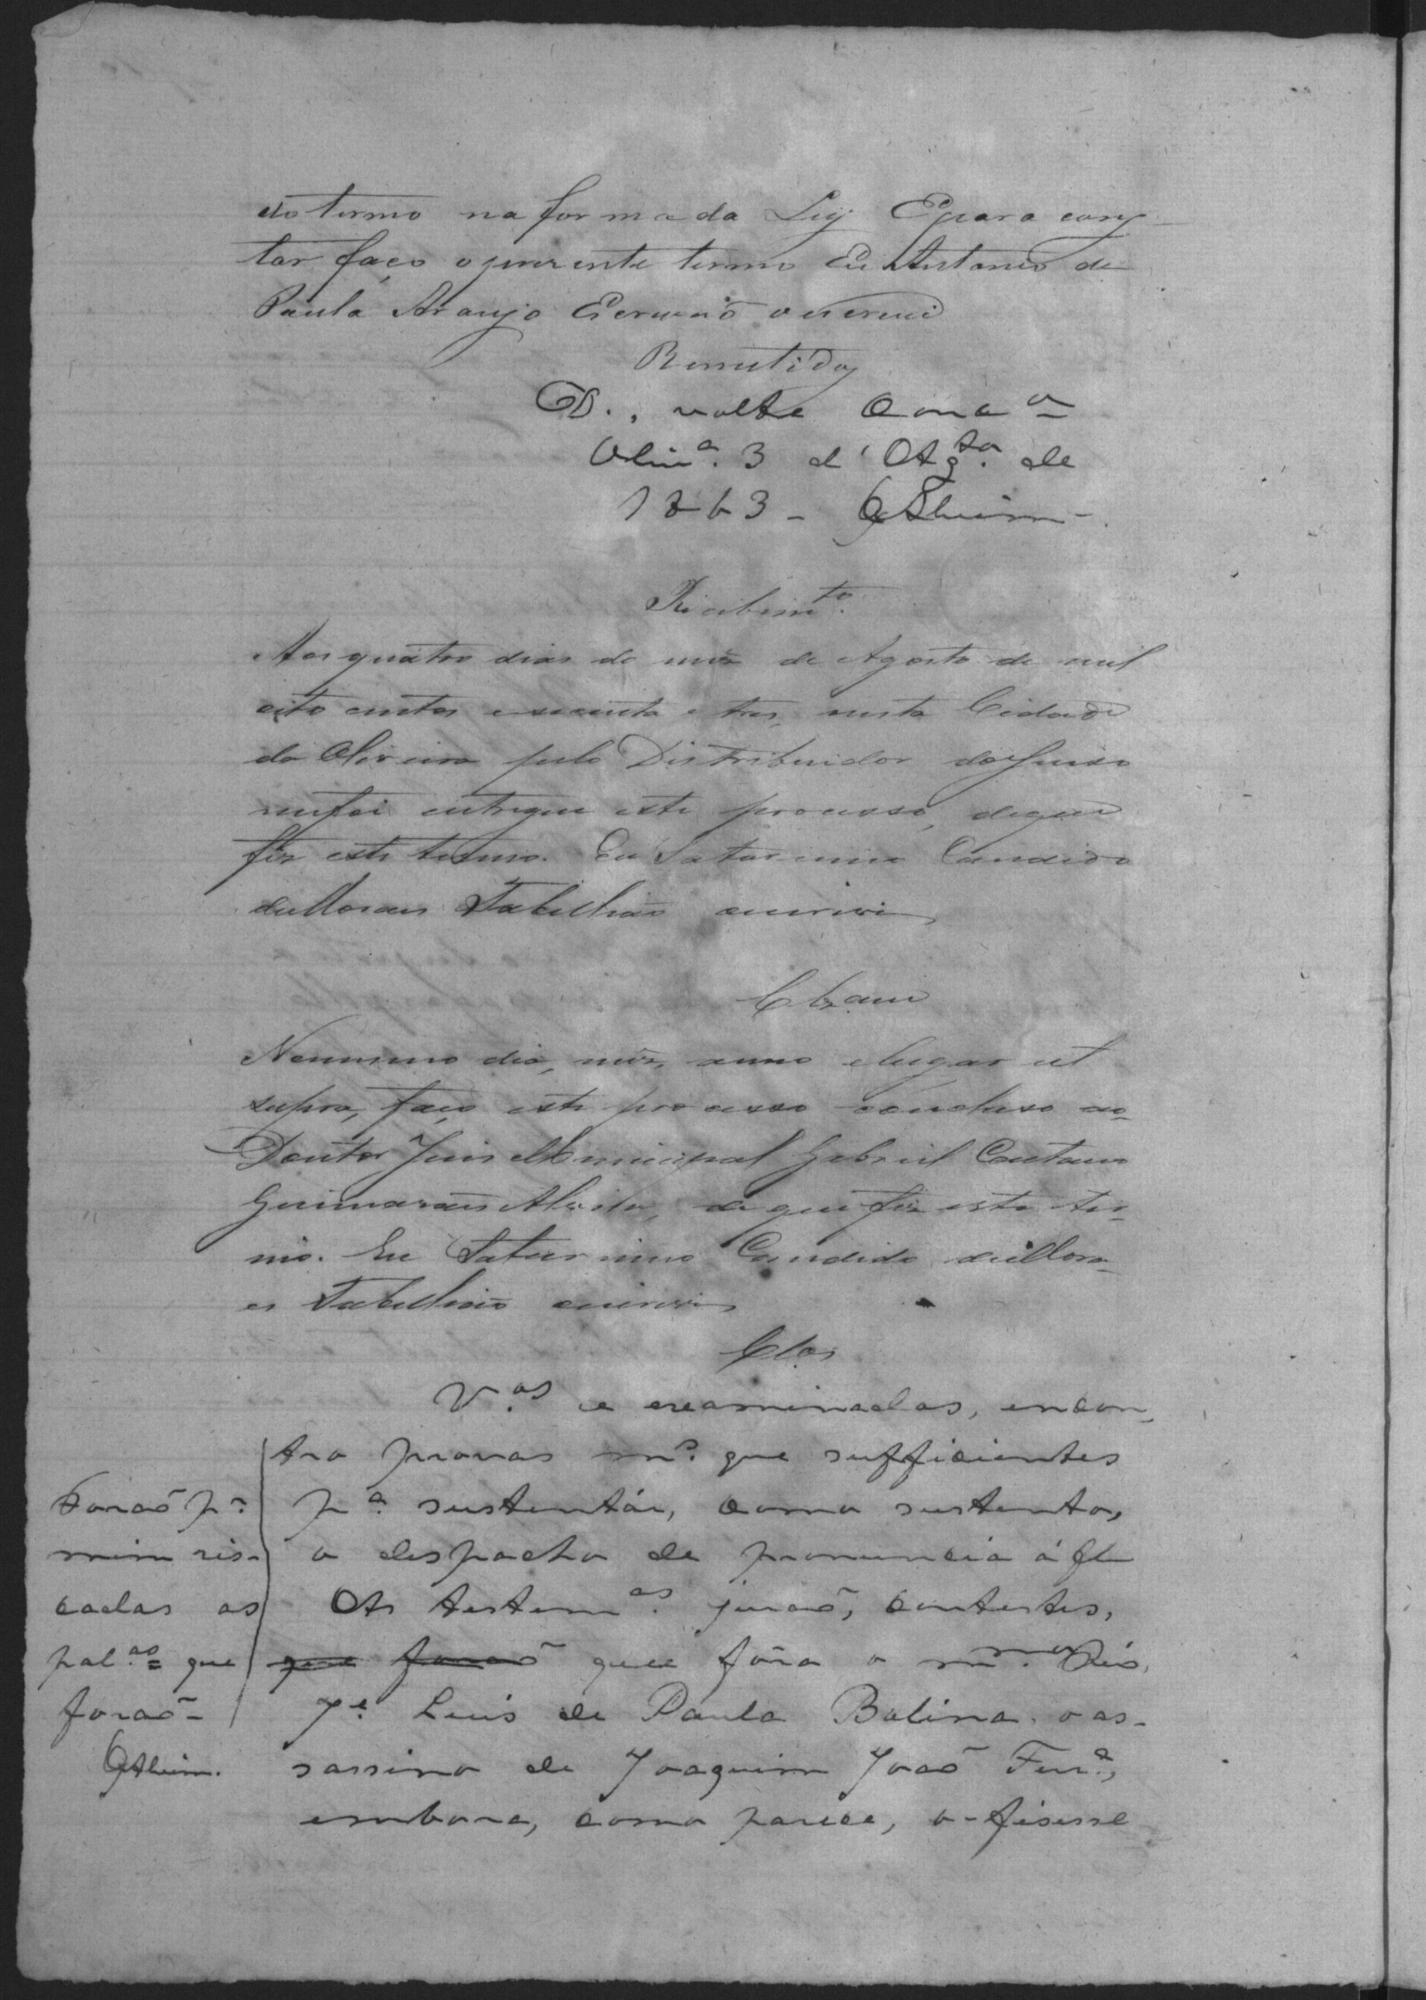 do termo na forma da Ley Epara cons
tar faço o prezente termo Eu Antonio de
Paula Araujo Escrivaõ o escrevi
Remetidos
D., volte Conc.ᵒˢ
Oliv.ª 3 d'Ag.ᵗᵒ de
1863 -
Recebim.ᵗᵒ
Aos quatro dias do mez de Agosto de mil
oito centos e secenta e tres, nesta Cidade
da Oliveira pelo Distribuidor do Juizo
me foi entregue este processo, de que
fiz este termo. Eu Saturnino Candido
de Moraes Tabelliaõ escrevi
Clzam
No mesmo dia, mez, anno e lugar ut
supra, faço este processo concluso ao
Doutor Juis Municipal Gabriel Caetano
Guimarães Alvim, de que fiz este ter-
mo. Eu Saturnino Candido de Mora-
es Tabelliaõ escrevi
Clos
V.ᵒˢ e examinados, encon-
tro provas m.ᵒ que sufficientes
p.ª sustentár, como sustento,
o despacho de pronuncia á fl
As testem.ᵃˢ juraõ, contestes,
que foraõ que fôra o m.ᵐᵒ Réo,
J.ᵉ Luis de Paula Balina o as-
sassino de Joaquim Joaõ Ferr.ª,
embora, como parece, o-fisesse
Foraõ p.ʳ
mim ris-
cadas as
pal.ᵃˢ que
foraõ -
GAlvim.